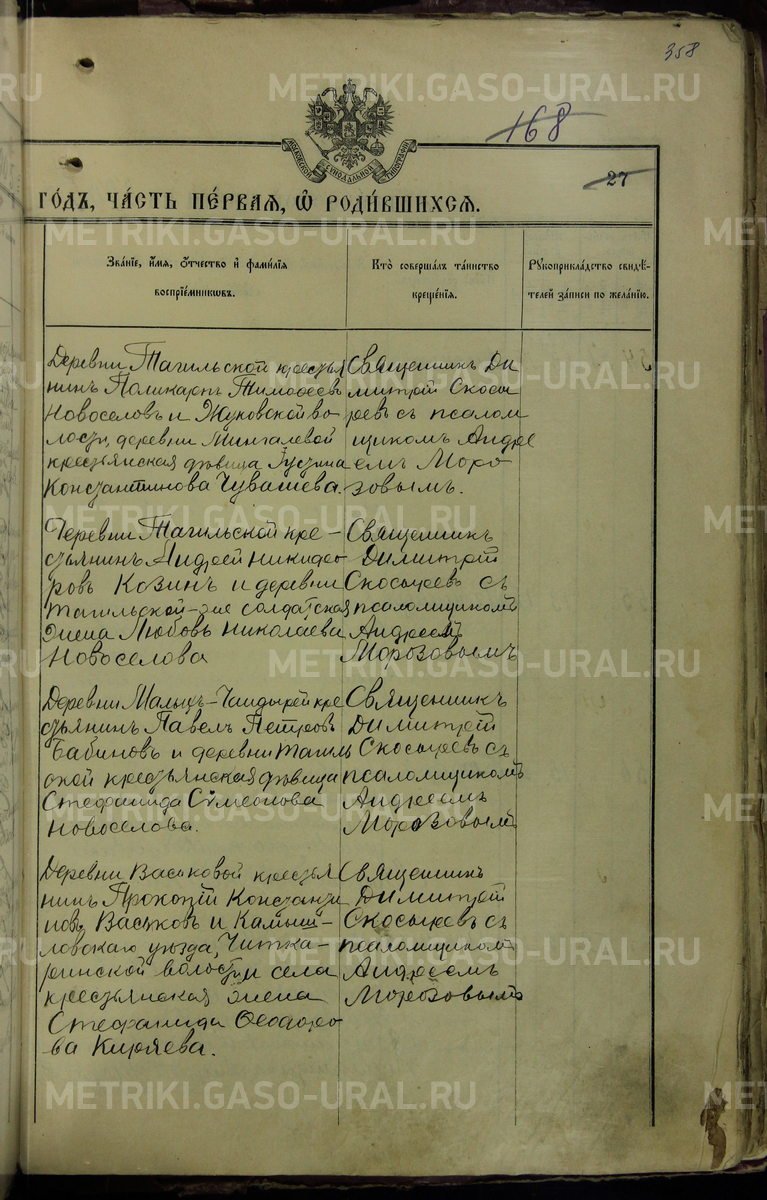 358
168
27
МОСКОВСКОЙ СѴНОДАЛЬНОЙ ТИПОГРАФІИ
ГО́ДЪ, ЧА́СТЬ ПЕ́РВАЯ, Ѡ҆ РОДИ́ВШИХСЯ.
Зва́нїе, и҆́мя, ѻ҆́тчество и҆ фами́лїя
воспрїе́мникѡвъ.
Кто̀ соверша́лъ та́инство
креще́нїя.
Рꙋкоприкла́дство свидѣ́-
телей за́писи по жела́нїю.
Деревни Тагильской крестья
нинъ Поликарпъ Тимофеевъ
Новоселовъ и Жуковской во-
лости, деревни Мингалевой
крестьянская дѣвица Іустина
Константинова Чувашева.
Священникъ Ди
митрій Скосы
ревъ съ псалом
щикомъ Андре
емъ Моро
зовымъ.
Деревни Тагильской кре-
стьянинъ Андрей Никифо-
ровъ Козинъ и деревни
Тагильской-же солдатская
жена Любовь Николаева
Новоселова
Священникъ
Димитрій
Скосыревъ съ
псаломщикомъ
Андреемъ
Морозовымъ
Деревни Малыхъ-Чандырей кре
стьянинъ Павелъ Петровъ
Бабиновъ и деревни Тагиль
ской крестьянская дѣвица
Стефанида Симеонова
Новоселова.
Священникъ
Димитрій
Скосыревъ съ
псаломщикомъ
Андреемъ
Морозовымъ
Деревни Васьковой крестья
нинъ Прокопій Константи
новъ Васьковъ и Камыш-
ловскаго уѣзда, Читка-
ринской волости и села
крестьянская жена
Стефанида Ѳеодоро
ва Киряева.
Священникъ
Димитрій
Скосыревъ съ
псаломщикомъ
Андреемъ
Морозовымъ
METRIKI.GASO-URAL.RU